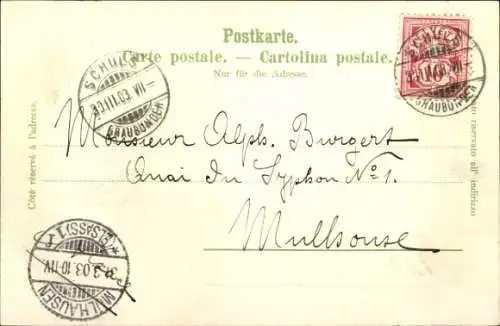 Postkarte.
Carte postale. — Cartolina postale.
Nur für die Adresse.
SCHULS
30.III.03. VII —
GRAUBÜNDEN
SCHULS
30.III.03. VII —
GRAUBÜNDEN
Monsieur Alph. Burgert
Quai du Syphon No 1.
Mulhouse
Côté réservé à l'adresse.
riservato all' indirizzo
MÜLHAUSEN
31.3.03. 10-11V.
* (ELSASS) 1 r